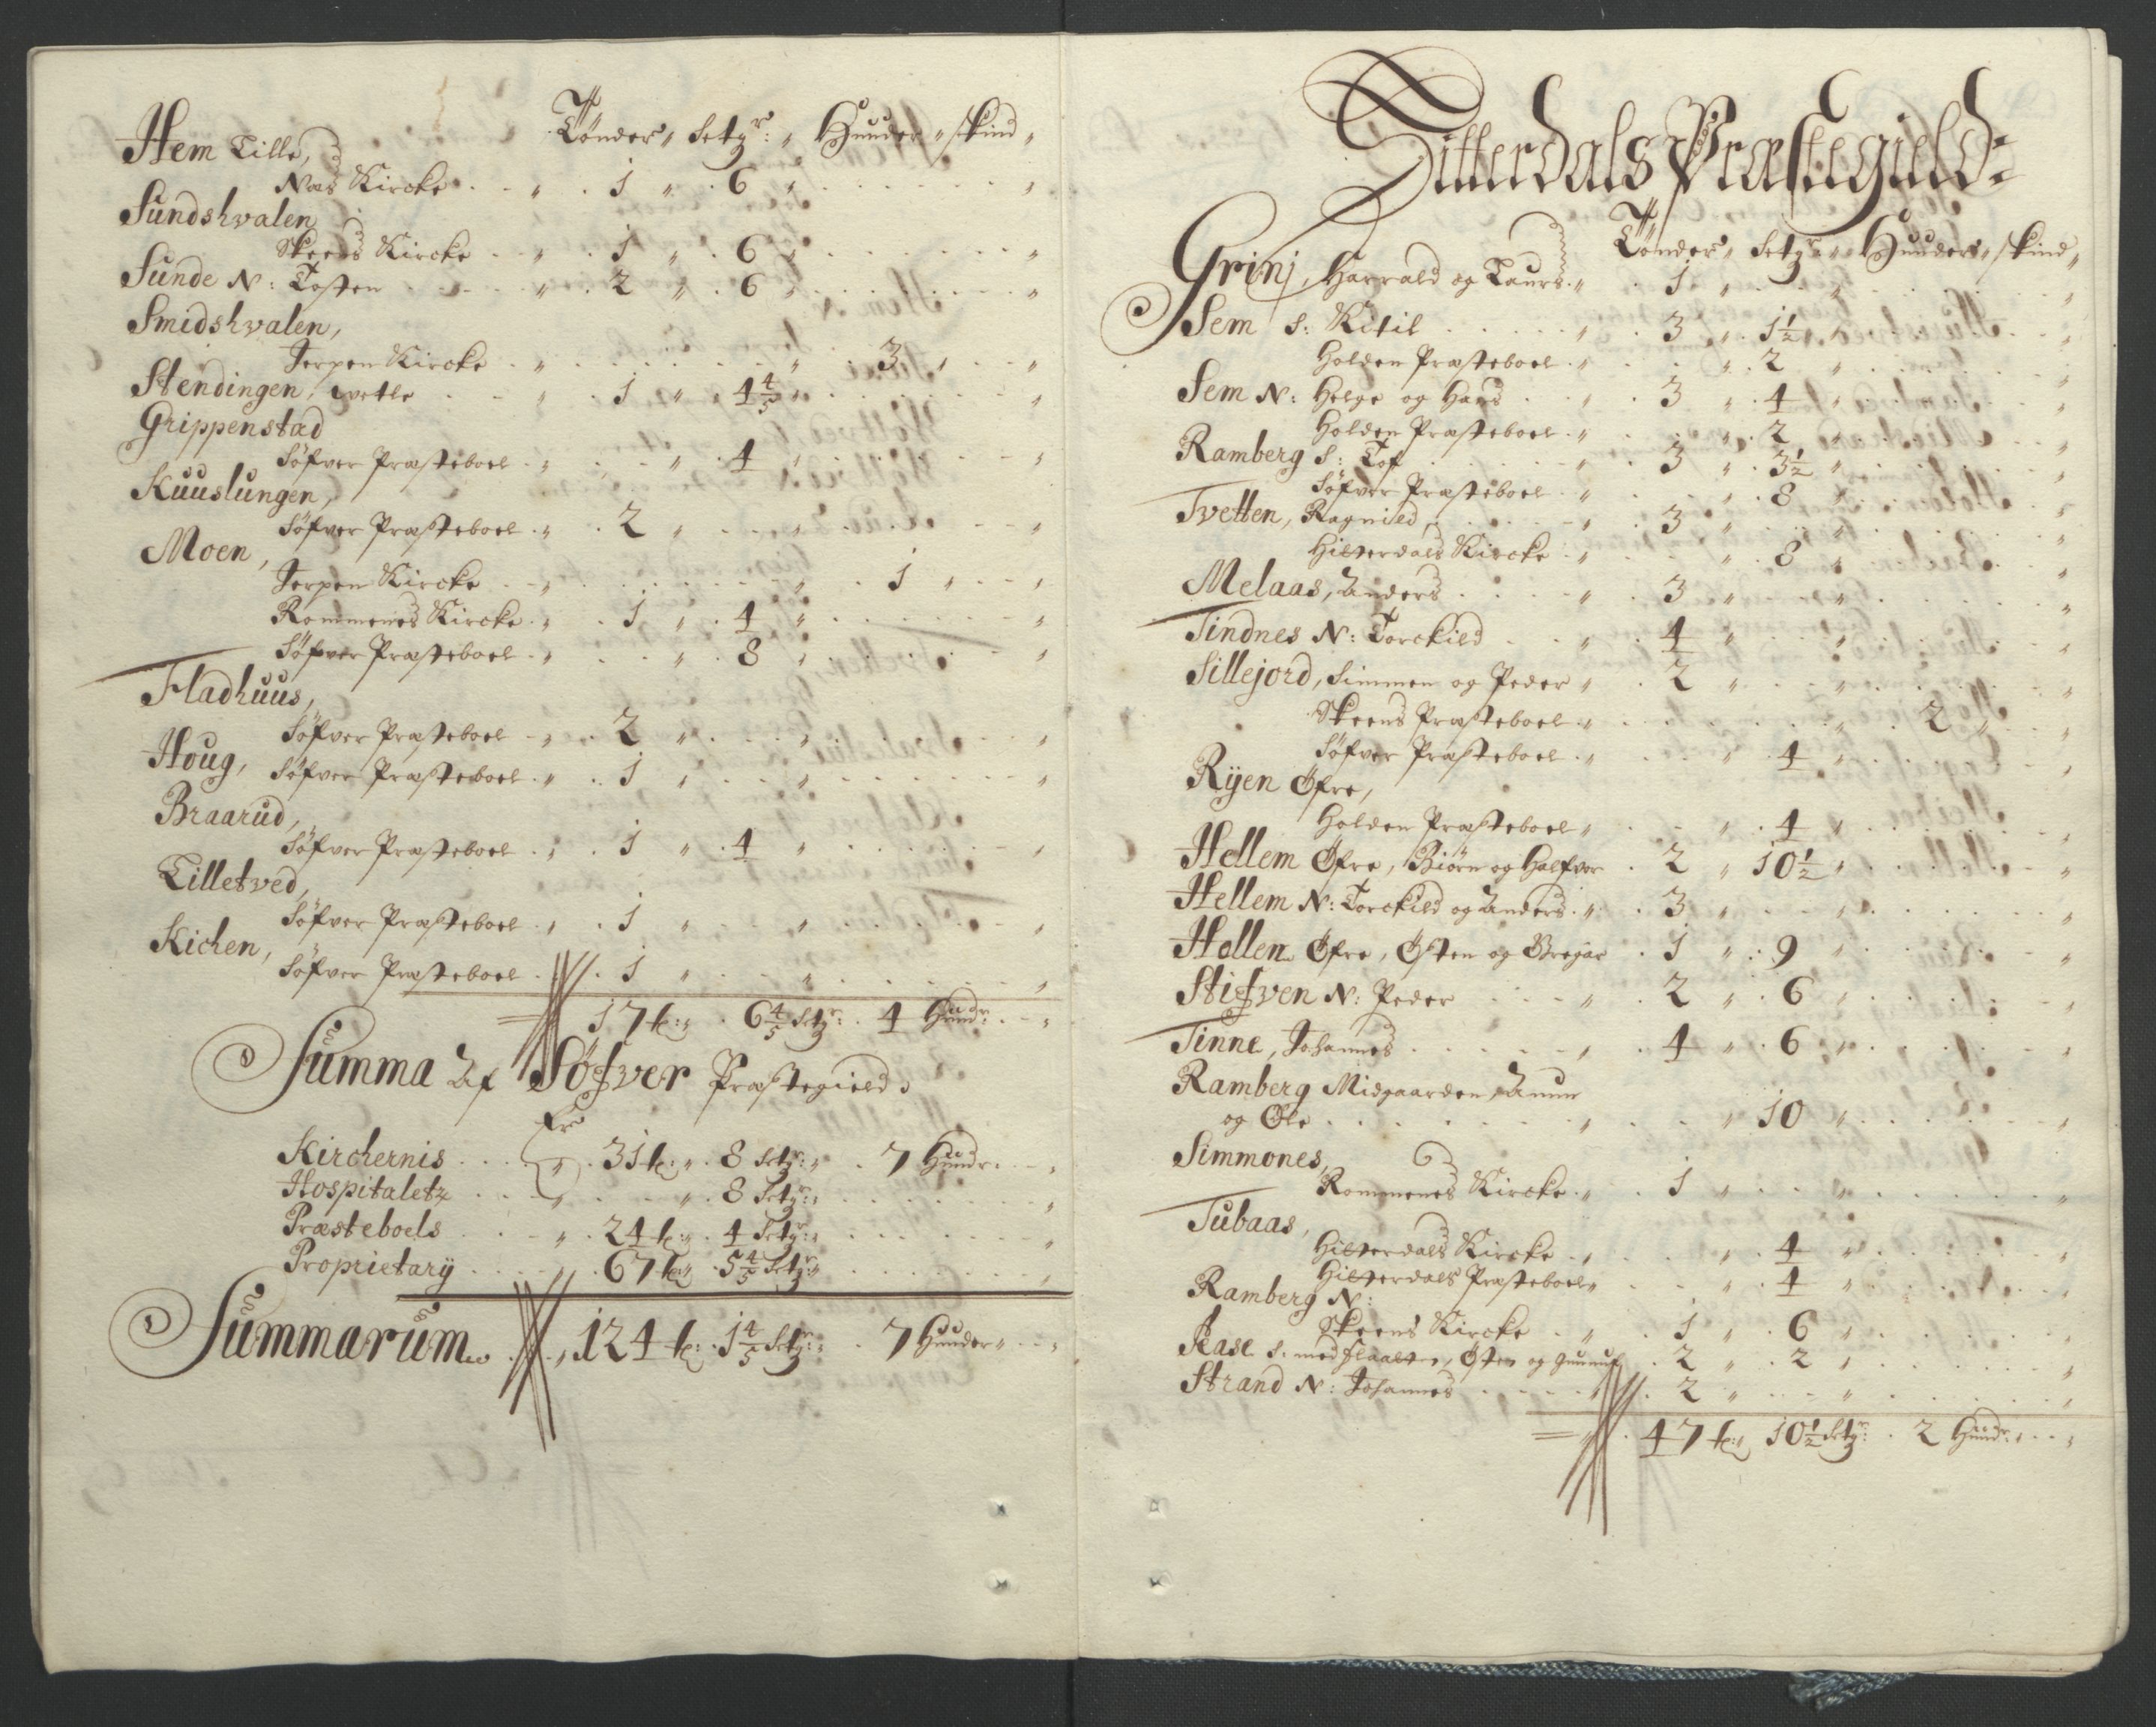 Tönder " Setgr: " Huuder " skind "
Hem Lille,
Næs Kircke . . " . 1 " . 6 " . . . . "
Sundshvalen
Skeens Kircke . . " . 1 " . 6 " . . . . "
Sunde N: Tosten . . " . 2 " . 6 " . . . . "
Smidshvalen,
Jerpen Kircke . " . . . . . " . 3 " . . "
Stendingen, wetle . . " . 1 " . 4 4/5 " . . . "
Grippenstad
Söfver Præsteboel . " . . . " . 4 " . . . "
Kuuslungen,
Söfver Præsteboel . " . 2 " . . . " . . . "
Moen,
Jerpen Kircke . . " . . . . . " . 1 " . . "
Rommenes Kircke . " . 1 " . 4 " . . . "
Söfver Præsteboel . " . . . " . 8 " . . . "
Fladhuus,
Söfver Præsteboel . " . 2 " . . . " . . . "
Houg, Söfver Præsteboel . " . 1 " . . . " . . . "
Braarud,
Söfver Præsteboel . " . 1 " . 4 " . . . "
Lilletved,
Söfver Præsteboel . " . 1 " . . . " . . . "
Kichen,
Söfver Præsteboel . . 1 " . . . " . . . "
17 t: " . 6 4/5 Setgr: . 4 Hundr: . . "
Summa Af Söfver Præstegield,
Er
Kirchernis . . . " . 31 t: " . 8 Setgr: " . 7 Hundr: . . "
Hospitaletz . . . " . . . " . 8 Setgr: " . . . "
Præsteboels . . . " . 24 t: " . 4 Setgr: " . . . "
Proprietarÿ . . . . 67 t: " . 5 4/5 Setgr: " . . . "
Summarum . . , 124 t: . 1 4/5 Setgr: " . 7 Hunder " . . "
Hitterdals Præstegield:
Tönder " Setgr: " Huuder " skind "
Grinj, Harrald og Laurs . " . 1 " . . . " . . . "
Sem S: Kitil . . . " . 3 " . 1 1/2 " . . . "
Holden Præsteboel . " . . . " . 2 " . . . "
Sem N: Helge og Hans . . " . 3 " . 4 " . . . "
Holden Præsteboel . " . . . " . 2 " . . . "
Ramberg S: Tof . . . " . 3 " . 3 1/2 " . . . "
Söfver Præsteboel . " . . . " . 8 " . . . "
Tvetten, Ragnild, . . . " . 3 " . . . " . . . "
Hitterdals Kircke . " . . . " . 8 " . . . "
Melaas, Anders . . . " . 3 " . . . " . . . "
Tindnes N: Torckild . . " . 4 " . . . " . . . "
Sillejord, Simmen og Peder " . 2 " . . . " . . . "
Skeens Præsteboel . " . . . . . " . 2 " . . "
Söfver Præsteboel . " . . . " . 4 " . . . "
Rÿen Öfre,
Holden Præsteboel " . . . " . 4 " . . . "
Hellem Öfre, Biörn og Halfvor . 2 " 10 1/2 " . . . "
Hellem N: Torckild og Anders . " . 3 " . . . " . . . "
Hellen Öfre, Östen og Gregar . 1 " . 9 " . . . "
Stifven N: Peder . . . " . 2 " . 6 " . . . "
Tinne, Johannes . . . " . 4 " . 6 " . . . "
Ramberg Midgaarden, Anun
og Ole . . . . . " . . . " 10 " . . . "
Simmones,
Rommenes Kircke . " . 1 " . . . " . . . "
Tubaas,
Hitterdals Kircke . " . . . " . 4 " . . . "
Hitterdals Præsteboel " . . . " . 4 " . . . "
Ramberg N:
Skeens Kircke . . " . 1 " . 6 " . . . "
Aase S: med flaaten, Östen og Gunnuf . 2 " . 2 " . . . "
Strand N: Johannes . . . " . 2 " . . . " . . . "
" . 47 t: " 10 1/2 Setgr: . 2 Hundr: . . "